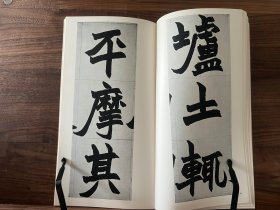 壚土輒
平摩其